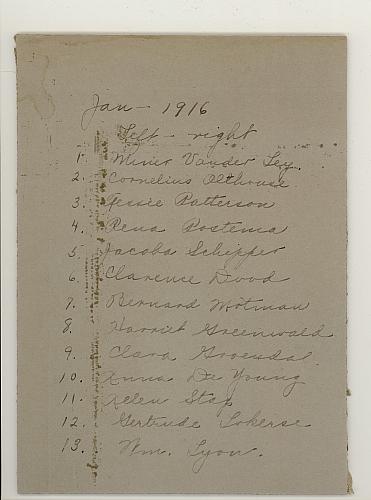 Jan - 1916
Left - right
1. Minier Vander Ley.
2. Cornelius Olthouse
3. Jessie Patterson
4. Rena Postema
5. Jacoba Schipper
6. Clarence Dood
7. Bernard Motman
8. Harriet Greenwald
9. Clara Groendal.
10. Anna De Young
11. Allen Stap
12. Gertrude Lokerse
13. Wm. Lyon.